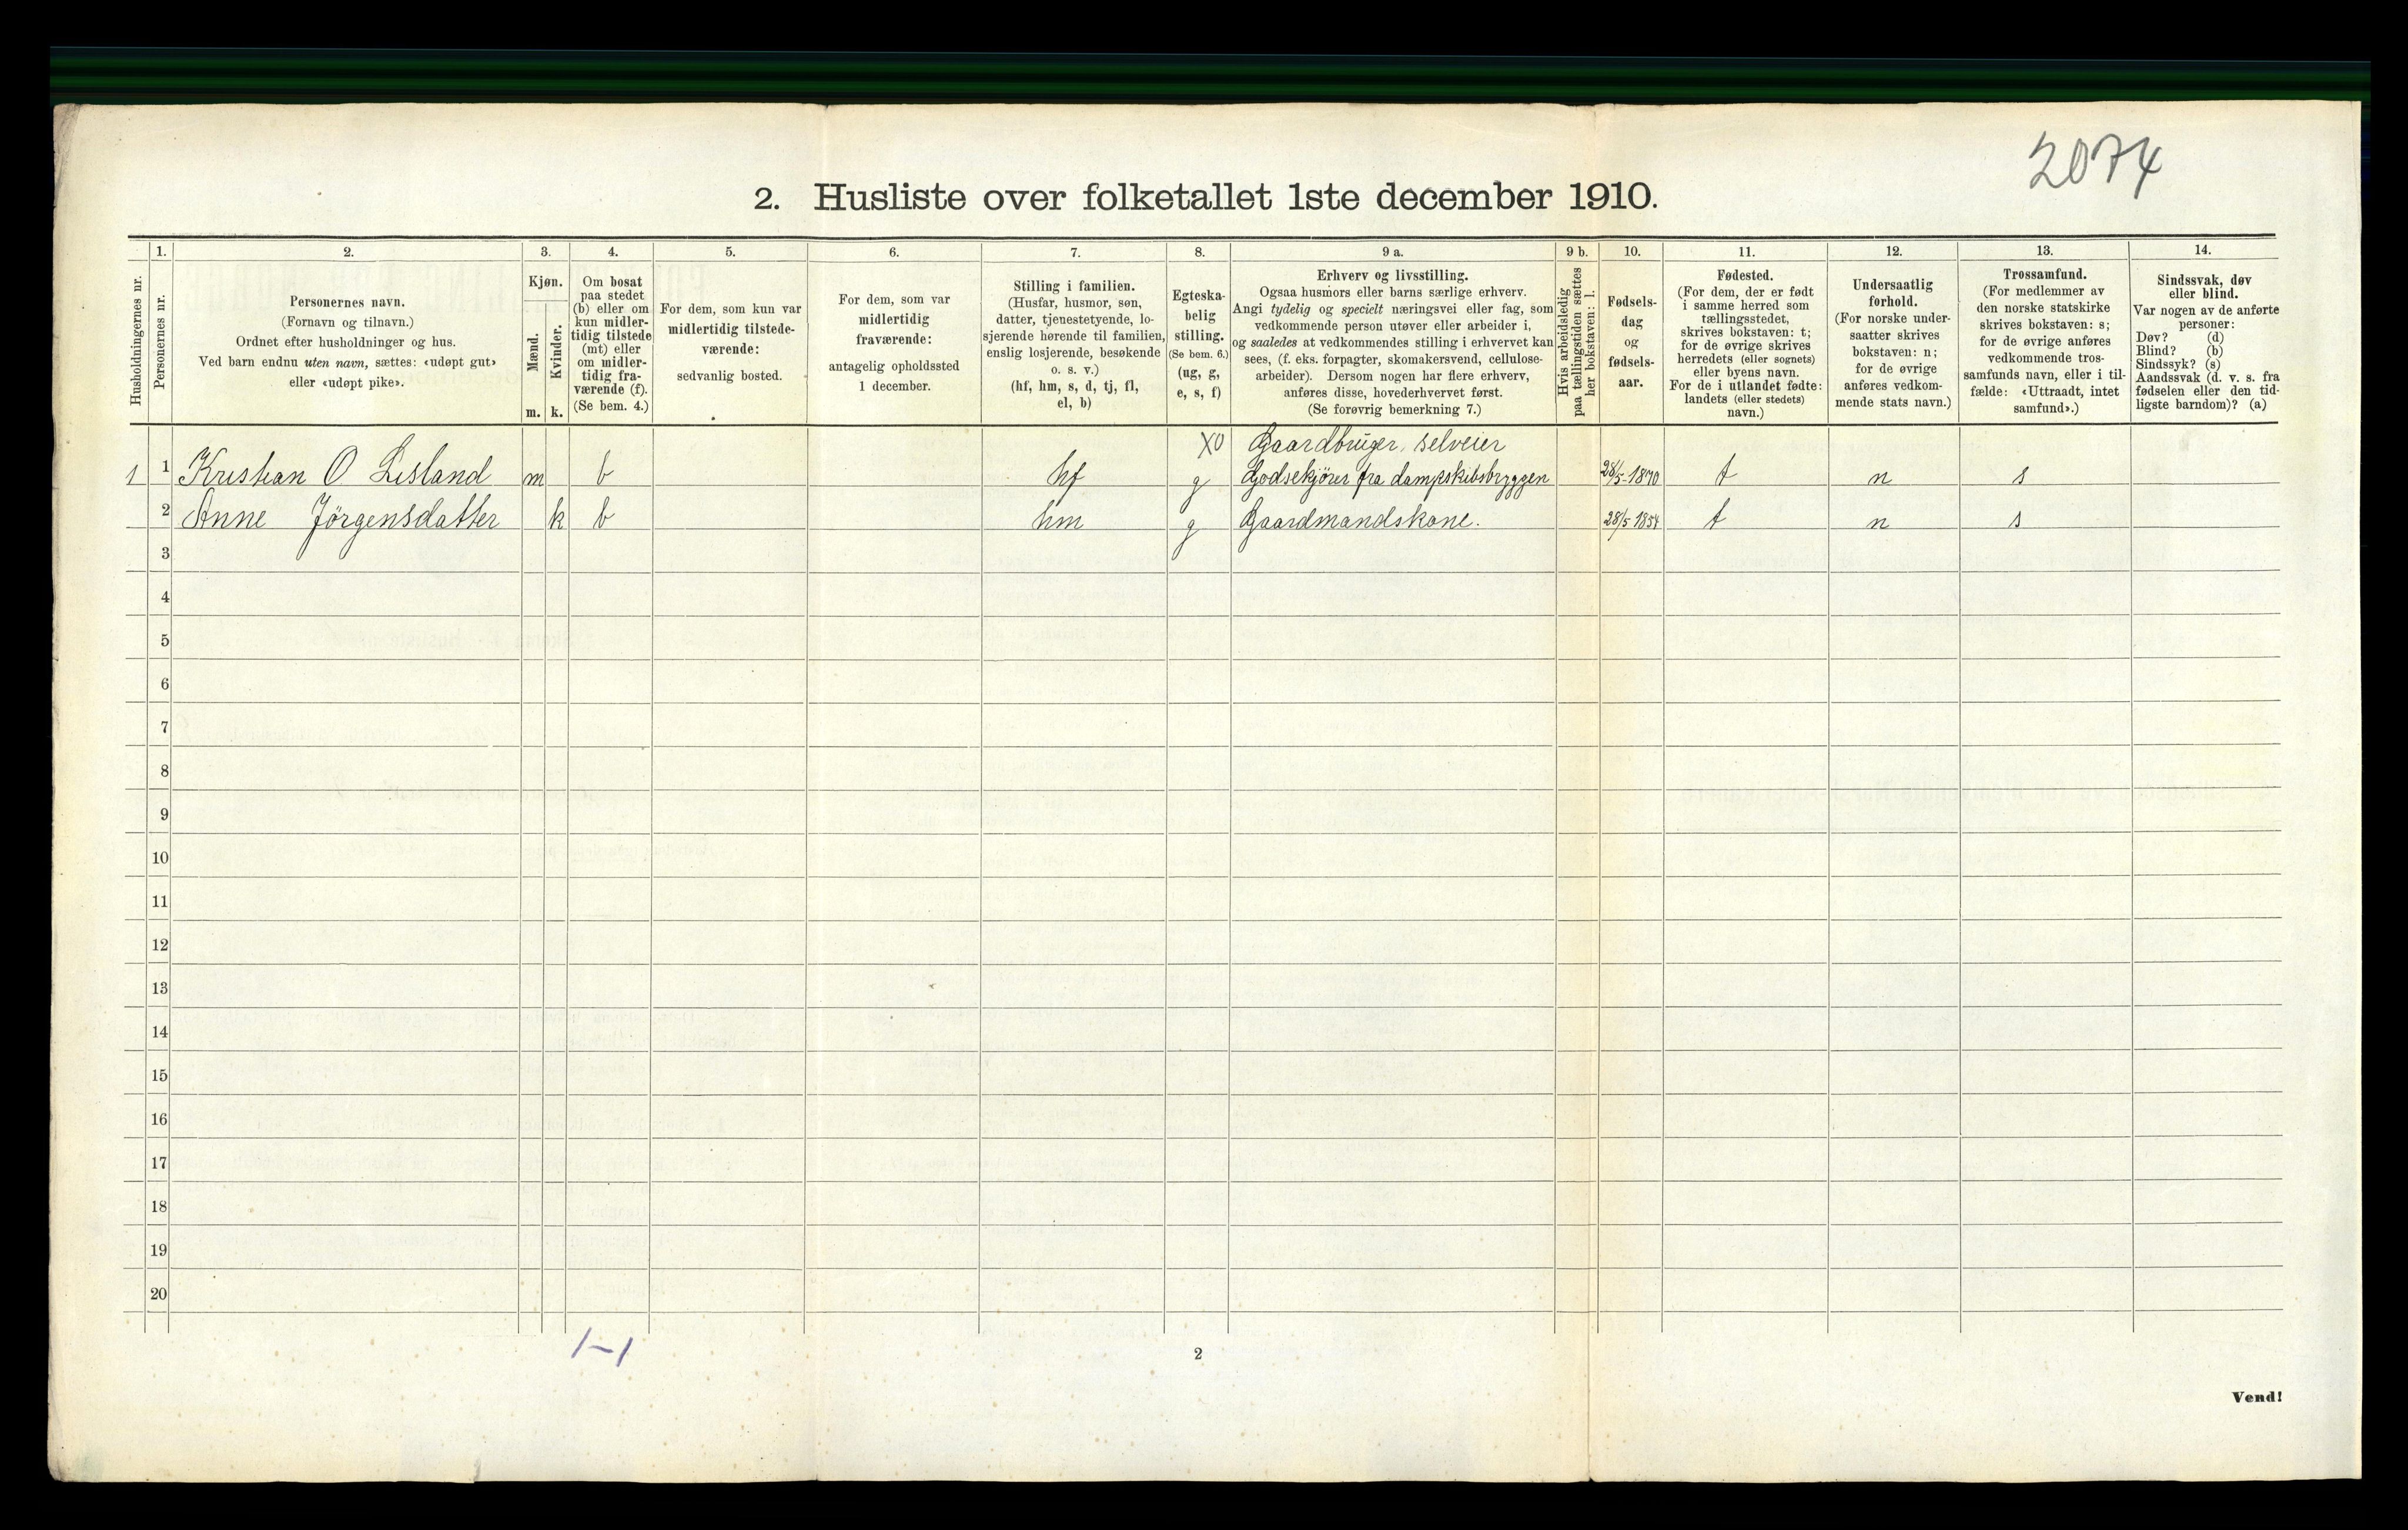 2074
2. Husliste over folketallet 1ste december 1910.
Husholdningernes nr.
1.
Personernes nr.
2.
Personernes navn.
(Fornavn og tilnavn.)
Ordnet efter husholdninger og hus.
Ved barn endnu uten navn, sættes: «udøpt gut»
eller «udøpt pike».
3.
Kjøn.
Mænd.
m.
Kvinder.
k.
4.
Om bosat
paa stedet
(b) eller om
kun midler-
tidig tilstede
(mt) eller
om midler-
tidig fra-
værende (f).
(Se bem. 4.)
5.
For dem, som kun var
midlertidig tilstede-
værende:
sedvanlig bosted.
6.
For dem, som var
midlertidig
fraværende:
antagelig opholdssted
1 december.
7.
Stilling i familien.
(Husfar, husmor, søn,
datter, tjenestetyende, lo-
sjerende hørende til familien,
enslig losjerende, besøkende
o. s. v.)
(hf, hm, s, d, tj, fl,
el, b)
8.
Egteska-
belig
stilling.
(Se bem. 6.)
(ug, g,
e, s, f)
9 a.
Erhverv og livsstilling.
Ogsaa husmors eller barns særlige erhverv.
Angi tydelig og specielt næringsvei eller fag, som
vedkommende person utøver eller arbeider i,
og saaledes at vedkommendes stilling i erhvervet kan
sees, (f. eks. forpagter, skomakersvend, cellulose-
arbeider). Dersom nogen har flere erhverv,
anføres disse, hovederhvervet først.
(Se forøvrig bemerkning 7.)
9 b.
Hvis arbeidsledig
paa tællingstiden sættes
her bokstaven: l.
10.
Fødsels-
dag
og
fødsels-
aar.
11.
Fødested.
(For dem, der er født
i samme herred som
tællingsstedet,
skrives bokstaven: t;
for de øvrige skrives
herredets (eller sognets)
eller byens navn.
For de i utlandet fødte:
landets (eller stedets)
navn.)
12.
Undersaatlig
forhold.
(For norske under-
saatter skrives
bokstaven: n;
for de øvrige
anføres vedkom-
mende stats navn.)
13.
Trossamfund.
(For medlemmer av
den norske statskirke
skrives bokstaven: s;
for de øvrige anføres
vedkommende tros-
samfunds navn, eller i til-
fælde: «Uttraadt, intet
samfund».)
14.
Sindssvak, døv
eller blind.
Var nogen av de anførte
personer:
Døv? (d)
Blind? (b)
Sindssyk? (s)
Aandssvak (d. v. s. fra
fødselen eller den tid-
ligste barndom)? (a)
X0 Gaardbruger, selveier
1 1 Kristian O Lisland m b hf g Godsekjörer fra dampskibsbryggen 28/5-1870 t n s
2 Anne Jörgensdatter k b hm g Gaardmandskone. 28/5 1854 t n s
3
4
5
6
7
8
9
10
11
12
13
14
15
16
17
18
19
20
1-1
2
Vend!